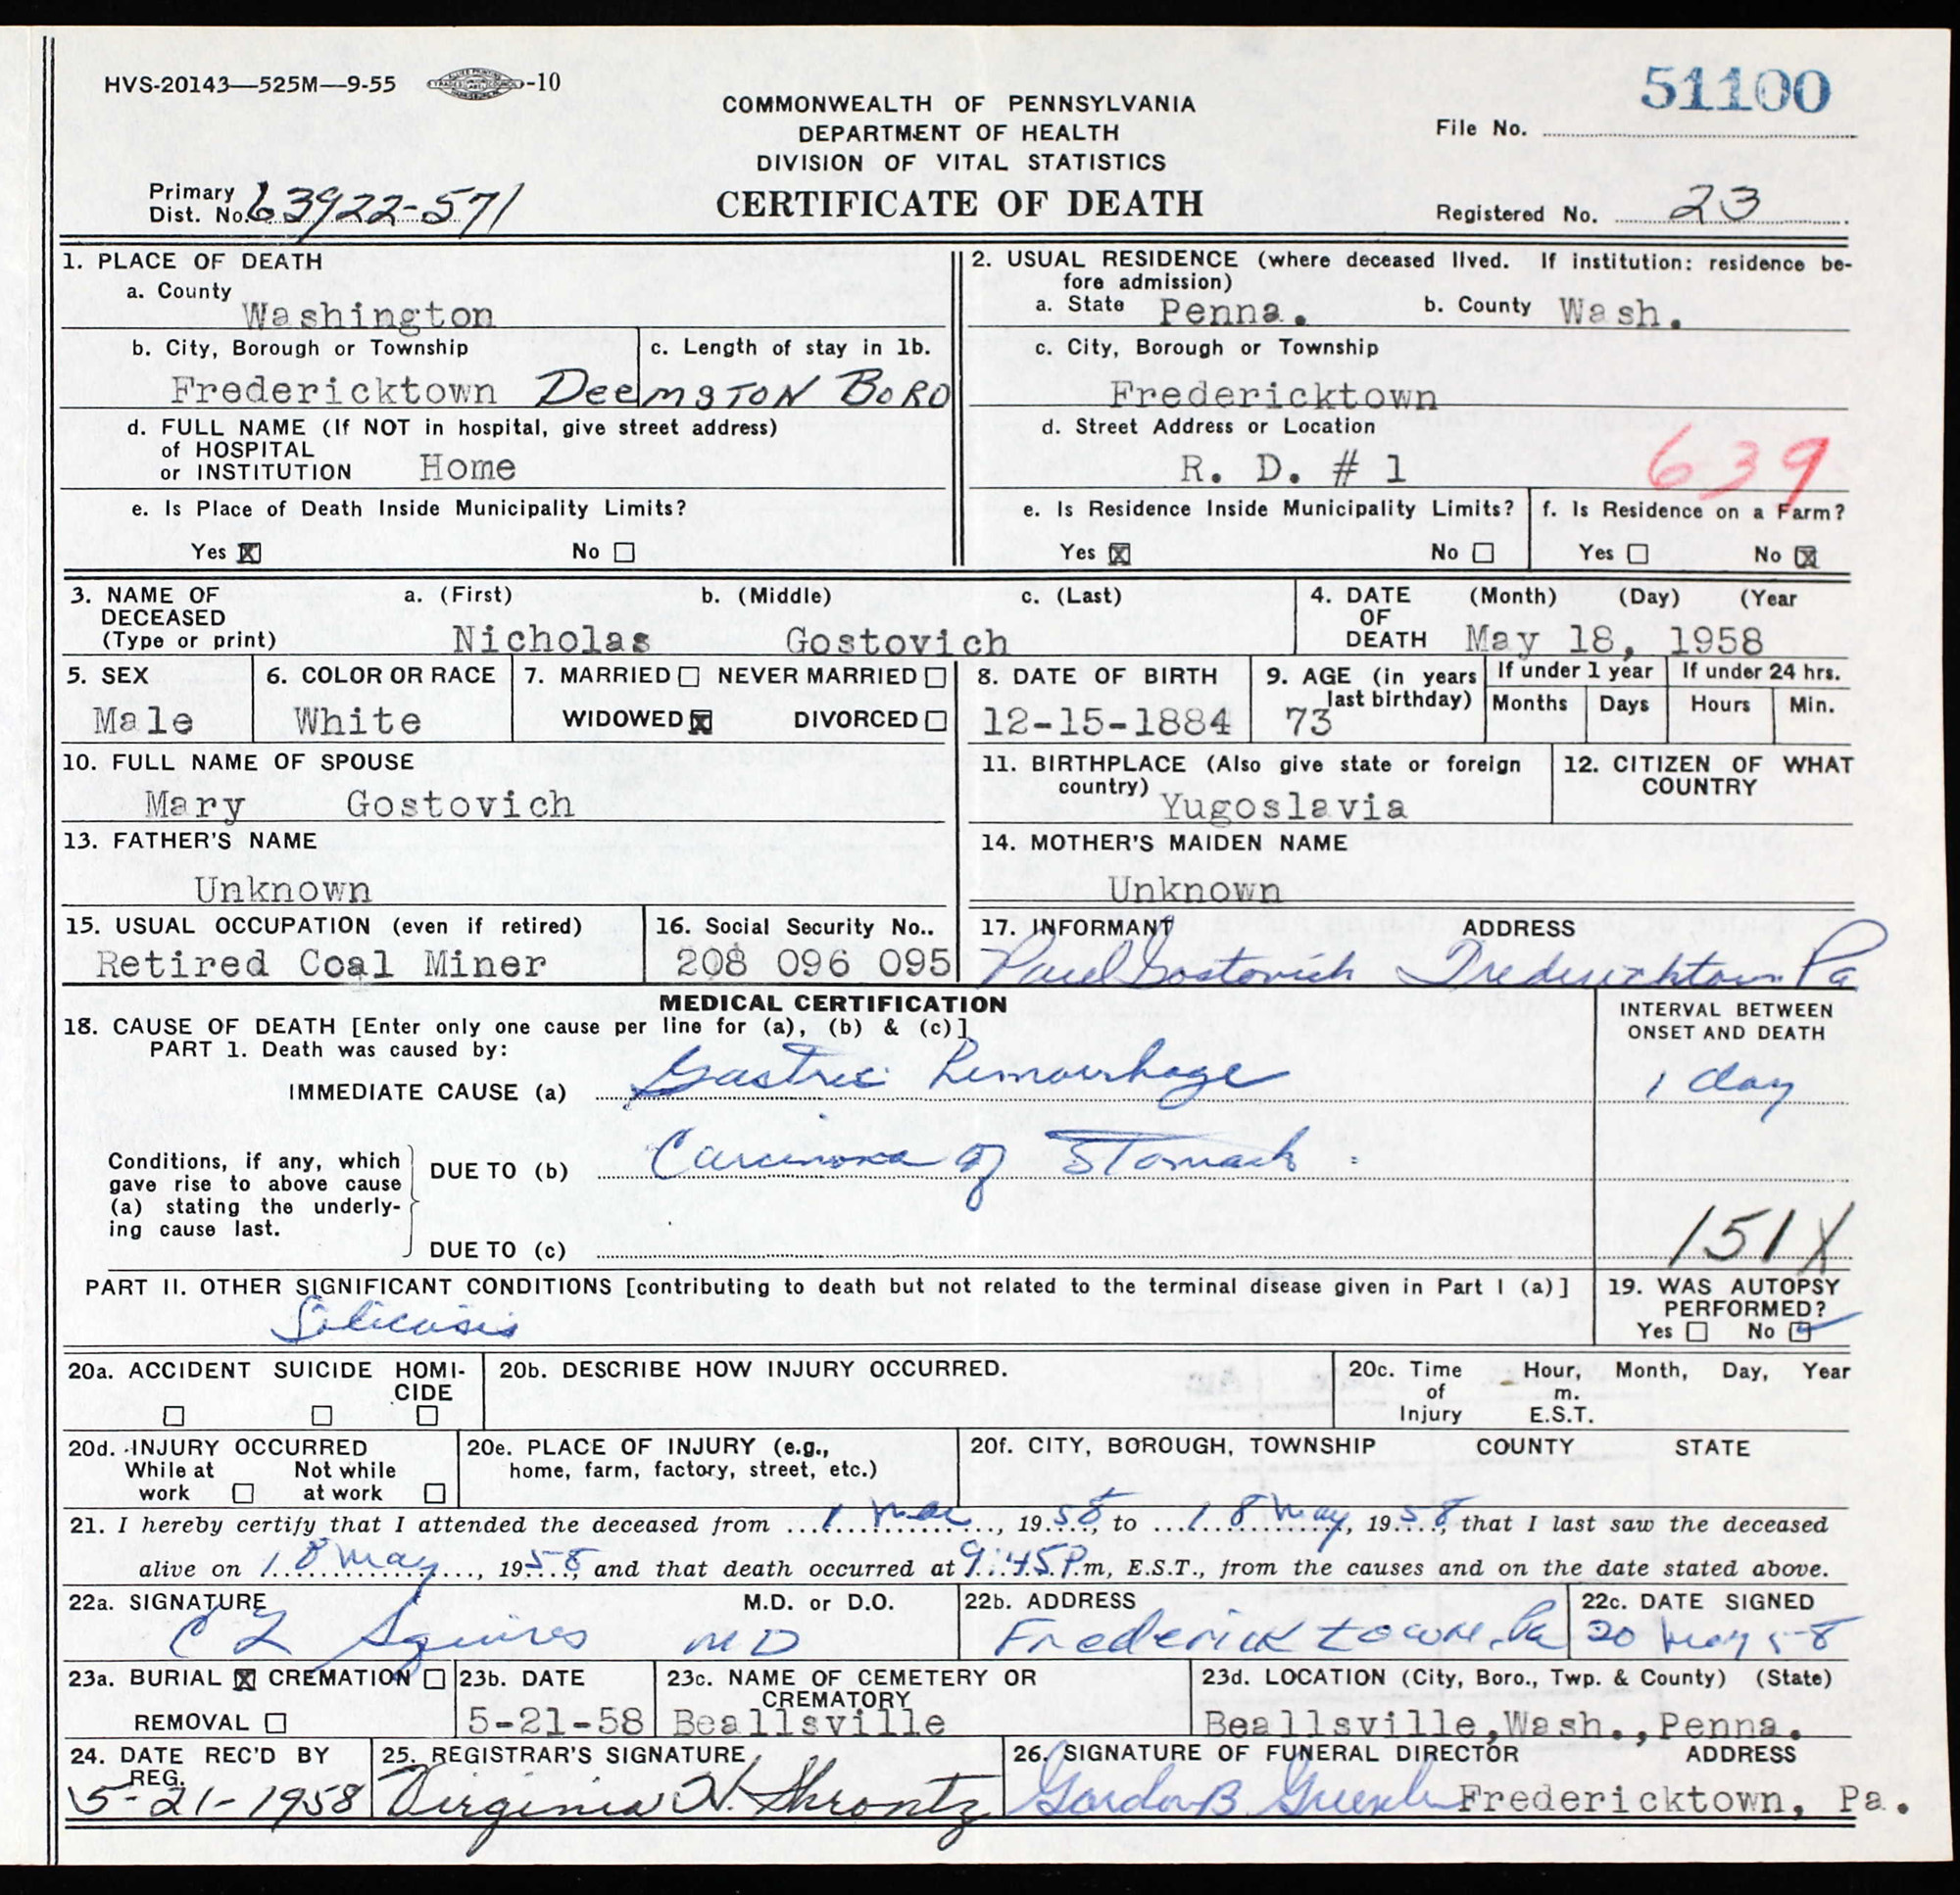 HVS-20143—525M—9-55 -10
51100
COMMONWEALTH OF PENNSYLVANIA
DEPARTMENT OF HEALTH
DIVISION OF VITAL STATISTICS
CERTIFICATE OF DEATH
File No.
Primary Dist. No. 63922-571
Registered No. 23
1. PLACE OF DEATH
a. County
Washington
b. City, Borough or Township
c. Length of stay in 1b.
Fredericktown Deemston Boro
d. FULL NAME (If NOT in hospital, give street address)
of HOSPITAL
or INSTITUTION Home
e. Is Place of Death Inside Municipality Limits?
Yes X No
2. USUAL RESIDENCE (where deceased lived. If institution: residence be-
fore admission)
a. State Penna. b. County Wash.
c. City, Borough or Township
Fredericktown
d. Street Address or Location
R. D. # 1
639
e. Is Residence Inside Municipality Limits?
Yes X No
f. Is Residence on a Farm?
Yes No X
3. NAME OF DECEASED (Type or print)
a. (First) b. (Middle) c. (Last)
Nicholas Gostovich
4. DATE OF DEATH (Month) (Day) (Year
May 18, 1958
5. SEX
Male
6. COLOR OR RACE
White
7. MARRIED NEVER MARRIED
WIDOWED X DIVORCED
8. DATE OF BIRTH
12-15-1884
9. AGE (in years last birthday)
73
If under 1 year
Months Days
If under 24 hrs.
Hours Min.
10. FULL NAME OF SPOUSE
Mary Gostovich
11. BIRTHPLACE (Also give state or foreign
country) Yugoslavia
12. CITIZEN OF WHAT
COUNTRY
13. FATHER'S NAME
Unknown
14. MOTHER'S MAIDEN NAME
Unknown
15. USUAL OCCUPATION (even if retired)
Retired Coal Miner
16. Social Security No..
208 096 095
17. INFORMANT ADDRESS
Paul Gostovich Fredericktown Pa
MEDICAL CERTIFICATION
18. CAUSE OF DEATH [Enter only one cause per line for (a), (b) & (c)]
PART 1. Death was caused by:
INTERVAL BETWEEN
ONSET AND DEATH
IMMEDIATE CAUSE (a) Gastric Hemorrhage 1 day
Conditions, if any, which
gave rise to above cause
(a) stating the underly-
ing cause last.
DUE TO (b) Carcinoma of Stomach
DUE TO (c)
151X
PART II. OTHER SIGNIFICANT CONDITIONS [contributing to death but not related to the terminal disease given in Part I (a)]
Silicosis
19. WAS AUTOPSY
PERFORMED?
Yes No ✓
20a. ACCIDENT SUICIDE HOMI-
CIDE
20b. DESCRIBE HOW INJURY OCCURRED.
20c. Time of Injury Hour, Month, Day, Year
m.
E.S.T.
20d. INJURY OCCURRED
While at work Not while at work
20e. PLACE OF INJURY (e.g.,
home, farm, factory, street, etc.)
20f. CITY, BOROUGH, TOWNSHIP COUNTY STATE
21. I hereby certify that I attended the deceased from 1 Mar, 1958, to 18 May, 1958, that I last saw the deceased
alive on 18 May, 1958, and that death occurred at 9:45 P.m, E.S.T., from the causes and on the date stated above.
22a. SIGNATURE M.D. or D.O.
C L Squires MD
22b. ADDRESS
Fredericktown, Pa
22c. DATE SIGNED
20 May 58
23a. BURIAL X CREMATION
REMOVAL
23b. DATE
5-21-58
23c. NAME OF CEMETERY OR
CREMATORY
Beallsville
23d. LOCATION (City, Boro., Twp. & County) (State)
Beallsville,Wash.,Penna.
24. DATE REC'D BY
REG.
5-21-1958
25. REGISTRAR'S SIGNATURE
Virginia H. Shrontz
26. SIGNATURE OF FUNERAL DIRECTOR ADDRESS
Gordon B Fredericktown, Pa.